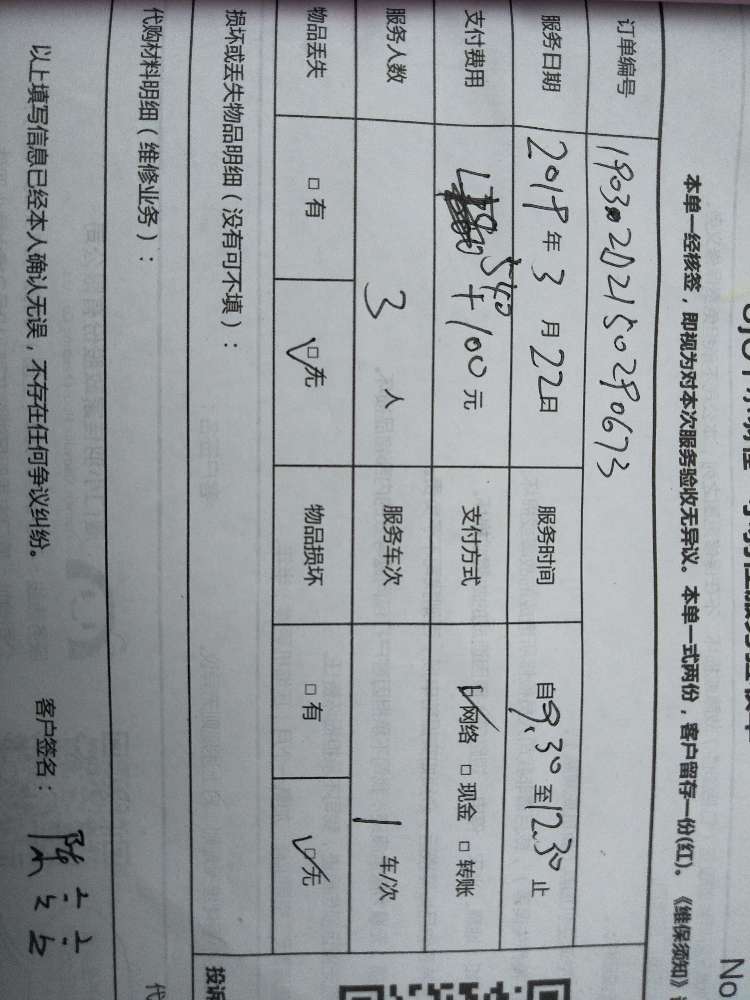 No
本单一经核签，即视为对本次服务验收无异议。本单一式两份，客户留存一份(红)。《维保须知》
订单编号
服务日期 2019年3月22日 服务时间 自9.30至12.30止
支付费用 540+100元 支付方式 □网络 □现金 □转账
服务人数 3人 服务车次 1车/次
物品丢失 □有 □无 物品损坏 □有 □无
损坏或丢失物品明细（没有可不填）：
投诉
代购材料明细（维修业务）：
代
以上填写信息已经本人确认无误，不存在任何争议纠纷。 客户签名：陈